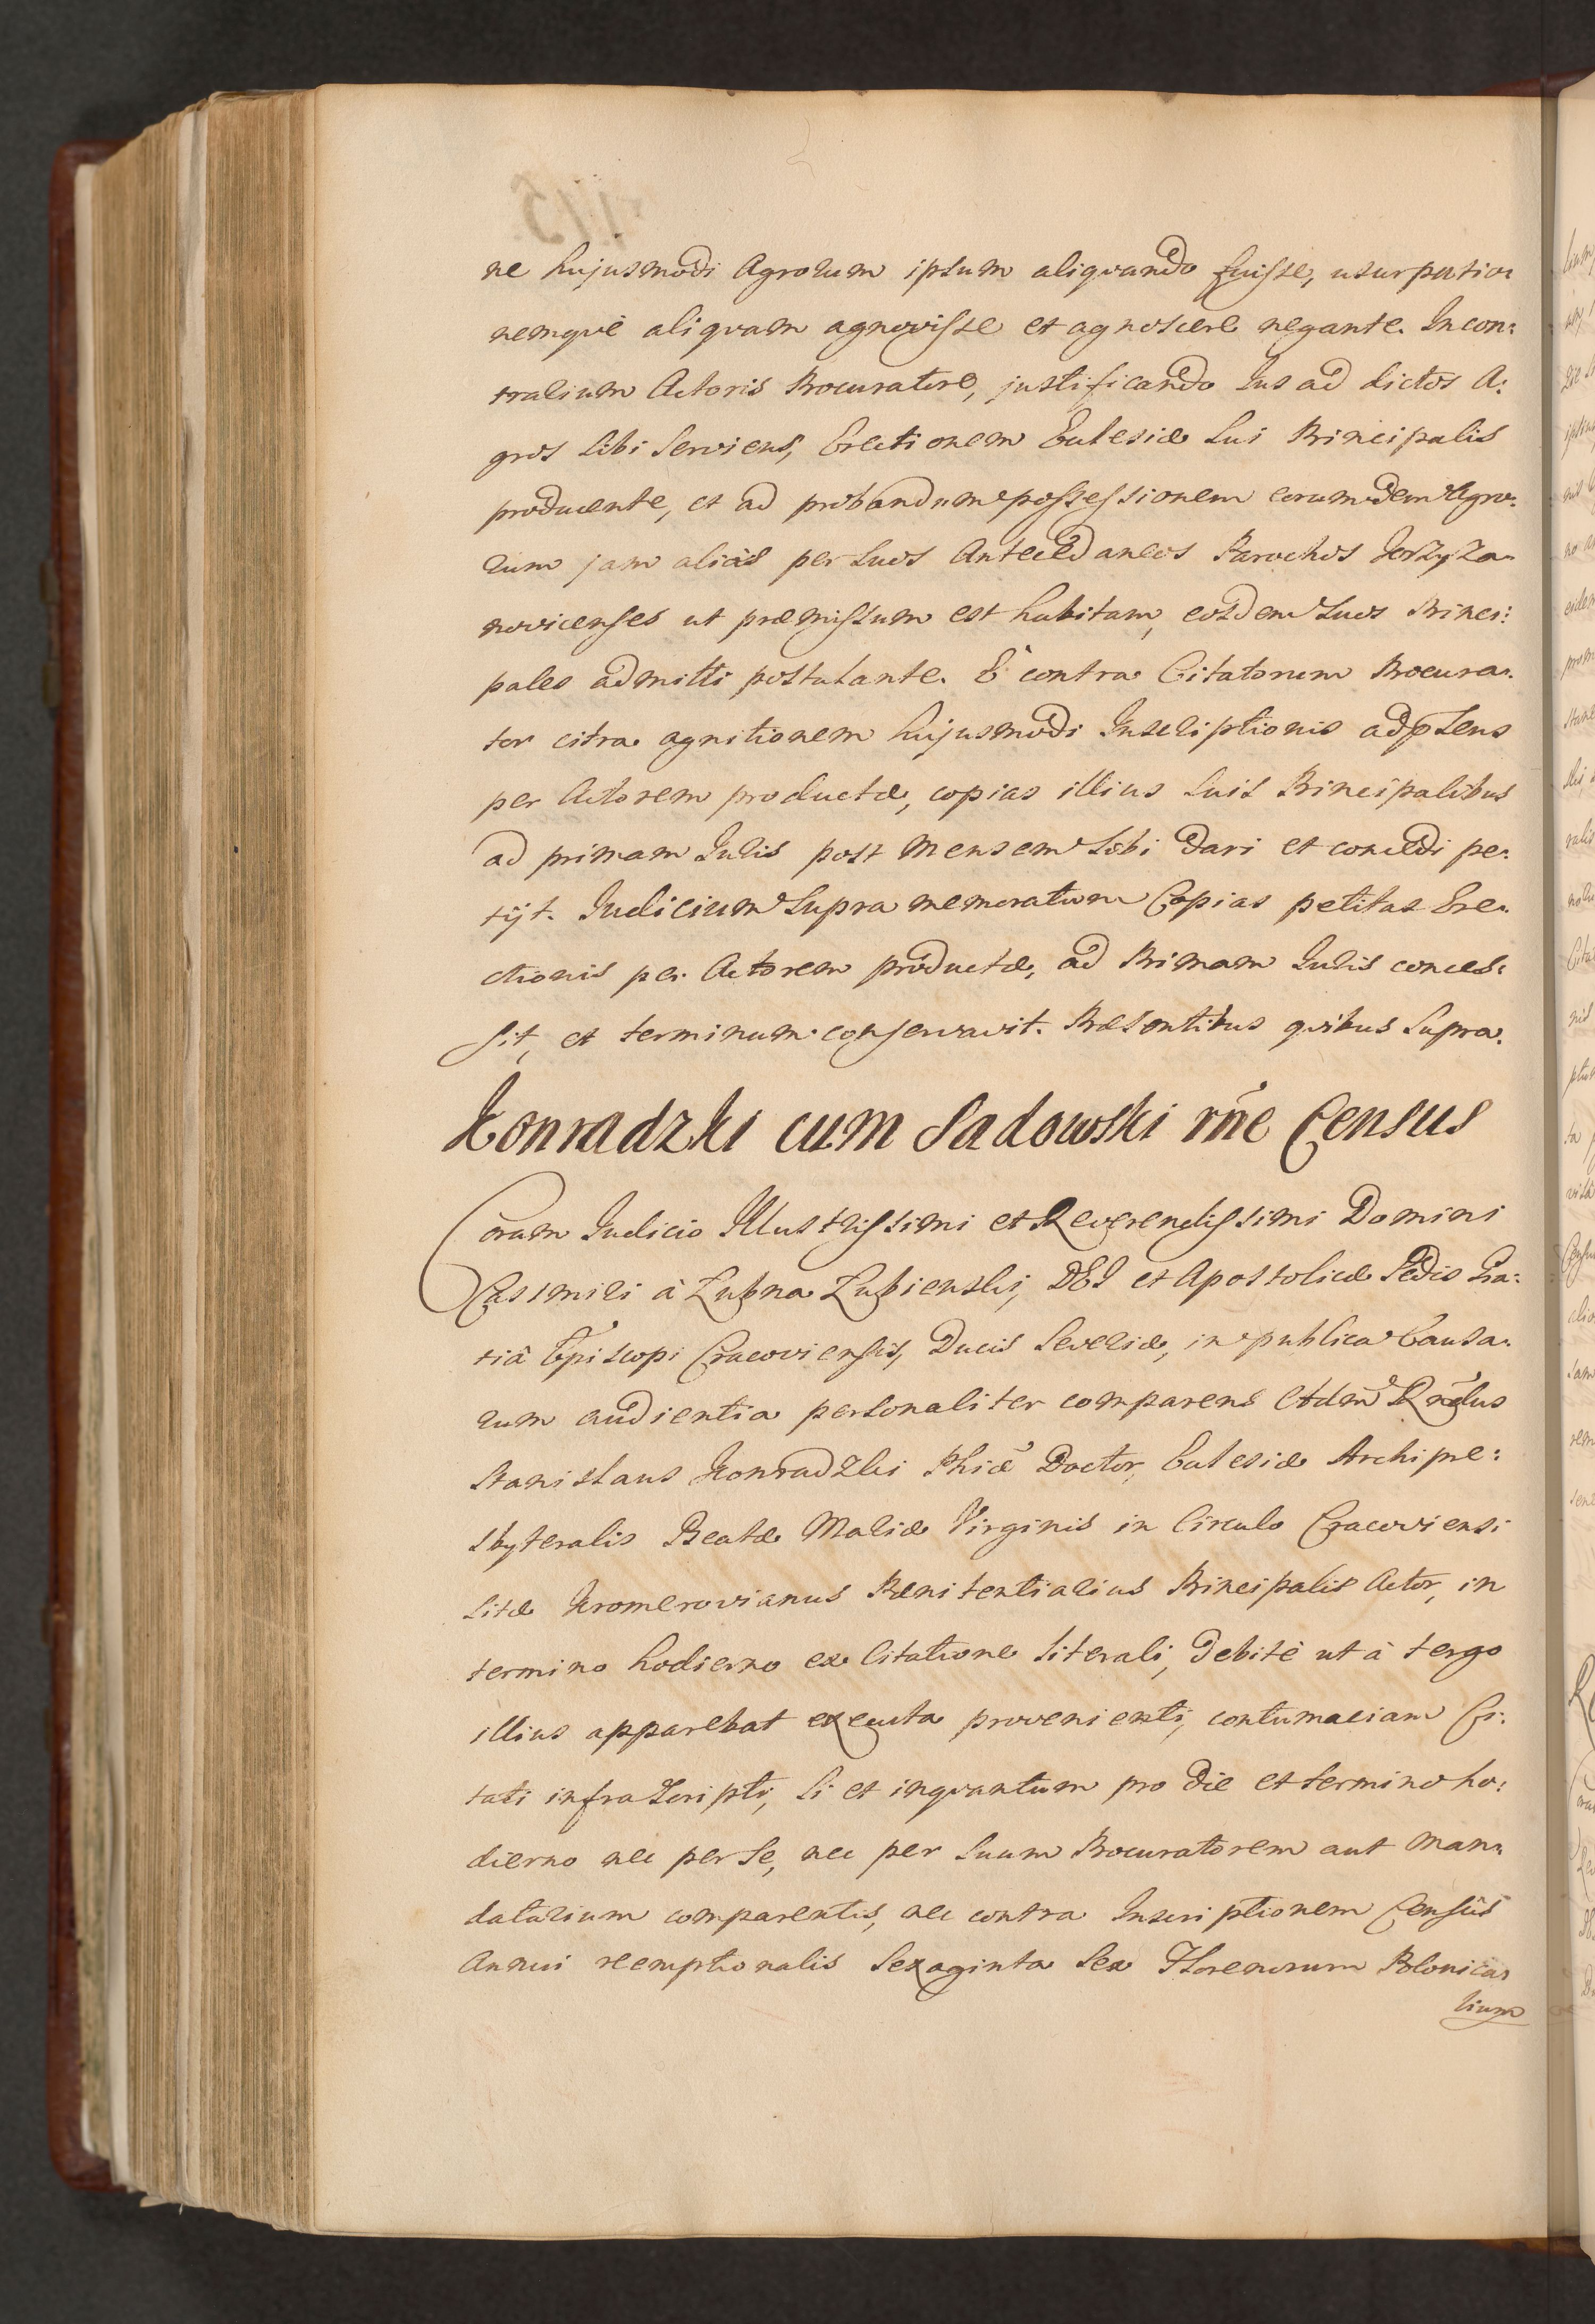 ne hujusmodi Agrorum ipsum aliqvando fuisse, usurpatio
nemqvè aliqvam agnovisse et agnoscere negante. In con:
trarium Actoris Procuratore, justificando Jus ad dictos A:
gros sibi serviens, Erectionem Ecclesiæ sui Principalis
producente, et ad probandum possessionem eorumdem Agro:
rum jam aliàs per suos Antecedaneos Parochos
novicenses ut præmissum est habitam, eosdem suos Princi:
pales admitti postulante. È contra Citatorum Procura:
tor citra agnitionem hujusmodi Inscriptionis ad pñs
per Actorem productæ, copias illius suis Principalibus
ad primam Juris post mensem sibi dari et concedi pe:
tijt. Judicium supra memoratum Copias petitas Ere:
ctionis per Actorem productæ, ad Primam Juris conces:
sit, et terminum conservavit. Præsentibus qvibus supra.
Konradzki cum Sadowski rñe Census
Coram Judicio Illustrissimi et Reverendissimi Domini
Casimiri à Łubna Łubienski, DEI et Apostolicæ Sedis Gra:
tiâ Episcopi Cracoviensis, Ducis Severiæ, in publica Causa:
rum audientia personaliter comparens Adm Rñdus
Stanislaus Konradzki Phiæ Doctor, Ecclesiæ Archipre:
sbyteralis Beatæ Mariæ Virginis in Circulo Cracoviensi
sitæ Kromerovianus Pænitentiarius Principalis Actor, in
termino hodierno ex Citatione literali, debitè ut à tergo
illius apparebat executa provenienti, contumaciam Ci:
tati infrascripti, si et inqvantum pro die et termino ho:
dierno nec per se, nec per suum Procuratorem aut Man:
datarium comparentis, nec contra Inscriptionem Censûs
Annui reemptionalis sexaginta sex Florenorum Polonica
lium